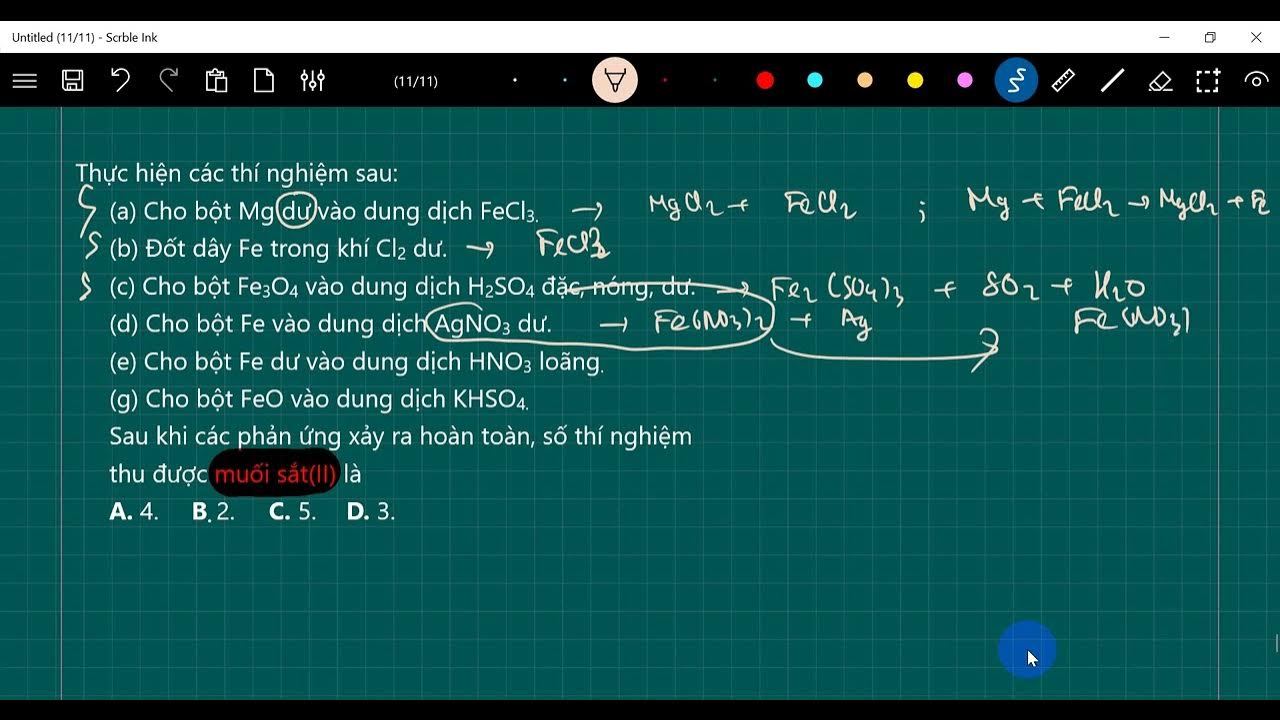 Untitled (11/11) - Scrble Ink
(11/11)
Thực hiện các thí nghiệm sau:
S (a) Cho bột Mg dư vào dung dịch FeCl₃. → MgCl₂ + FeCl₂ ; Mg + FeCl₂ → MgCl₂ + Fe
S (b) Đốt dây Fe trong khí Cl₂ dư. → FeCl3
S (c) Cho bột Fe₃O₄ vào dung dịch H₂SO₄ đặc, nóng, dư. → Fe₂(SO₄)₃ + SO₂ + H₂O
(d) Cho bột Fe vào dung dịch AgNO₃ dư. → Fe(NO₃)₂ + Ag Fe(NO₃)
(e) Cho bột Fe dư vào dung dịch HNO₃ loãng.
(g) Cho bột FeO vào dung dịch KHSO₄.
Sau khi các phản ứng xảy ra hoàn toàn, số thí nghiệm
thu được muối sắt(II) là
A. 4. B. 2. C. 5. D. 3.